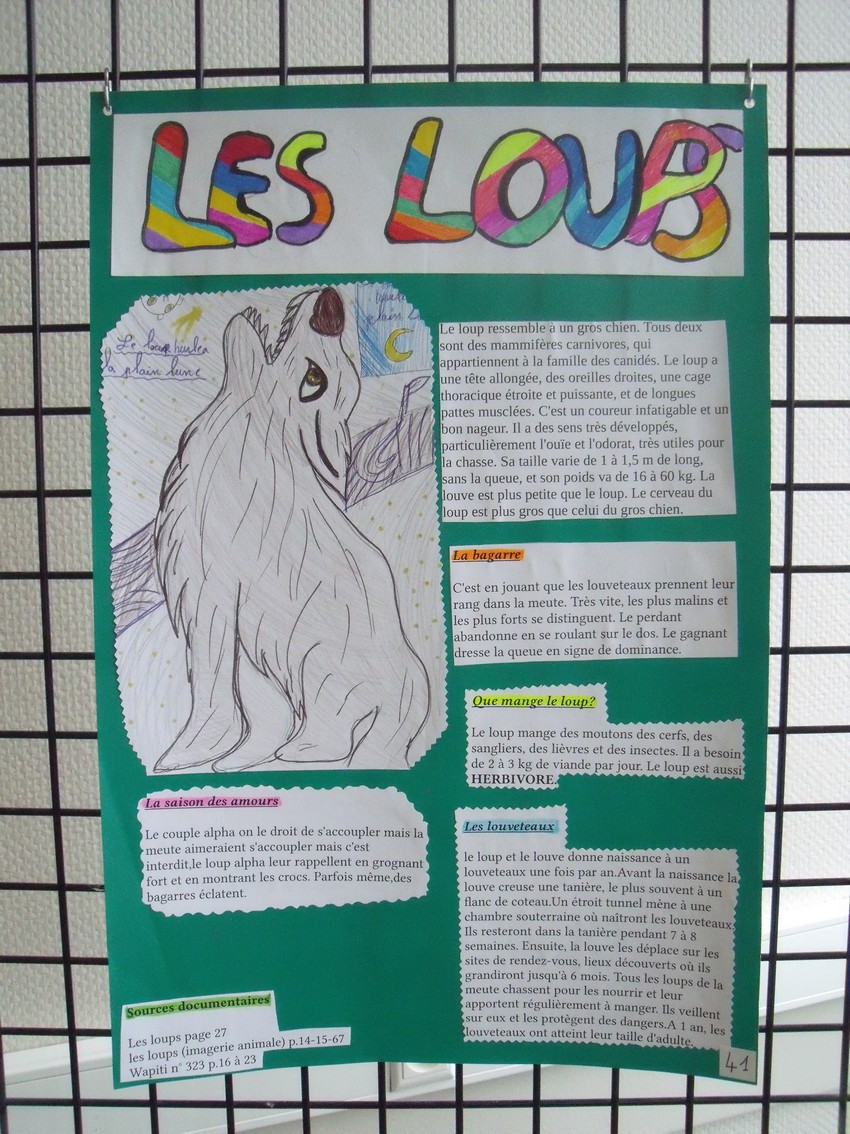 LES LOUPS
Le loup hurle a
la plain lune
Le loup ressemble à un gros chien. Tous deux
sont des mammifères carnivores, qui
appartiennent à la famille des canidés. Le loup a
une tête allongée, des oreilles droites, une cage
thoracique étroite et puissante, et de longues
pattes musclées. C'est un coureur infatigable et un
bon nageur. Il a des sens très développés,
particulièrement l'ouïe et l'odorat, très utiles pour
la chasse. Sa taille varie de 1 à 1,5 m de long,
sans la queue, et son poids va de 16 à 60 kg. La
louve est plus petite que le loup. Le cerveau du
loup est plus gros que celui du gros chien.
La bagarre
C'est en jouant que les louveteaux prennent leur
rang dans la meute. Très vite, les plus malins et
les plus forts se distinguent. Le perdant
abandonne en se roulant sur le dos. Le gagnant
dresse la queue en signe de dominance.
Que mange le loup?
Le loup mange des moutons des cerfs, des
sangliers, des lièvres et des insectes. Il a besoin
de 2 à 3 kg de viande par jour. Le loup est aussi
HERBIVORE.
La saison des amours
Le couple alpha on le droit de s'accoupler mais la
meute aimeraient s'accoupler mais c'est
interdit,le loup alpha leur rappellent en grognant
fort et en montrant les crocs. Parfois même,des
bagarres éclatent.
Les louveteaux
le loup et le louve donne naissance à un
louveteaux une fois par an.Avant la naissance la
louve creuse une tanière, le plus souvent à un
flanc de coteau.Un étroit tunnel mène à une
chambre souterraine où naîtront les louveteaux.
Ils resteront dans la tanière pendant 7 à 8
semaines. Ensuite, la louve les déplace sur les
sites de rendez-vous, lieux découverts où ils
grandiront jusqu'à 6 mois. Tous les loups de la
meute chassent pour les nourrir et leur
apportent régulièrement à manger. Ils veillent
sur eux et les protègent des dangers.A 1 an, les
louveteaux ont atteint leur taille d'adulte.
Sources documentaires
Les loups page 27
les loups (imagerie animale) p.14-15-67
Wapiti n° 323 p.16 à 23
41